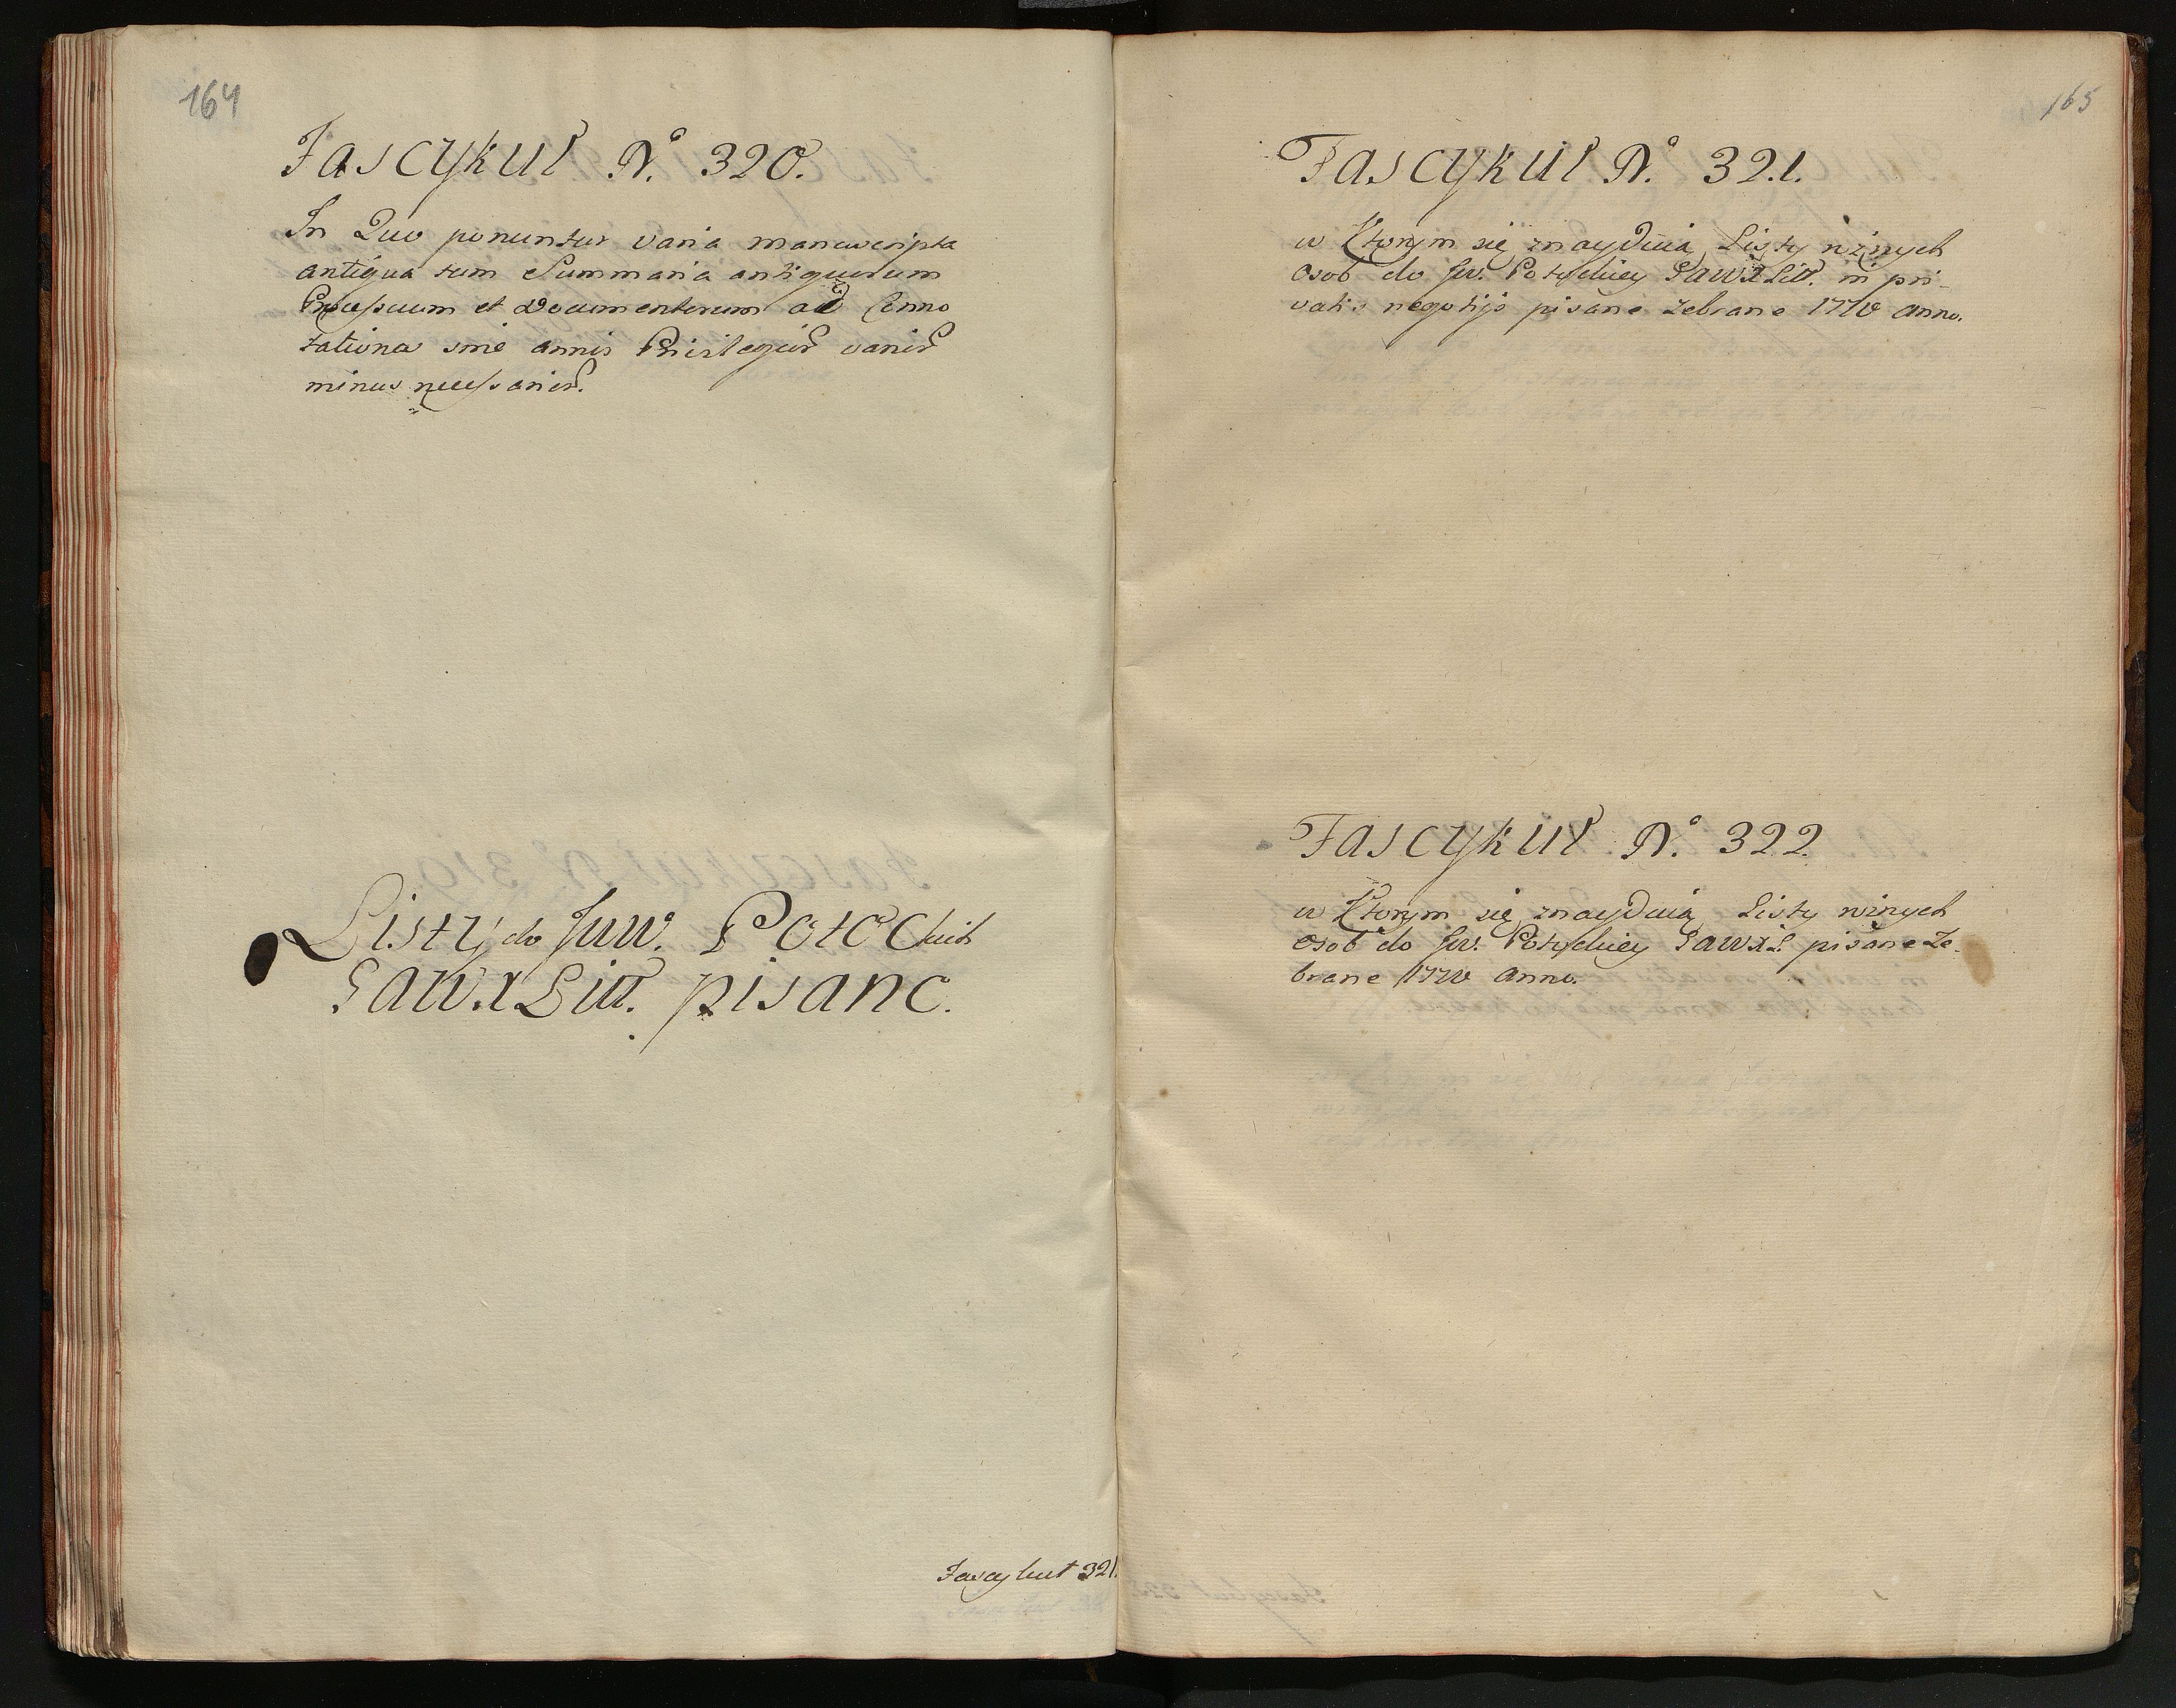 164
Fascykuł No. 320.
In Quo ponuntur varia manuscripta
antiqua tum Summaria antiquorum
Processuum et Documentorum ad Conno
tationa sine annis
minus necessaria.
Listy do Jww. Potockich
GAWXLitt. pisane.
Fascykuł 321.
165
Fascykuł No. 321.
w Ktorym się znayduią Listy rożnych
Osob do Jw. Potockiey GAWXLitt. in pri-
vatis negotijs pisane zebrane anno.
Fascykuł No. 322
w Ktorym się znayduią Listy rożnych
Osob do Jw. Potockiey GAWXL. pisane Ze-
brane anno.